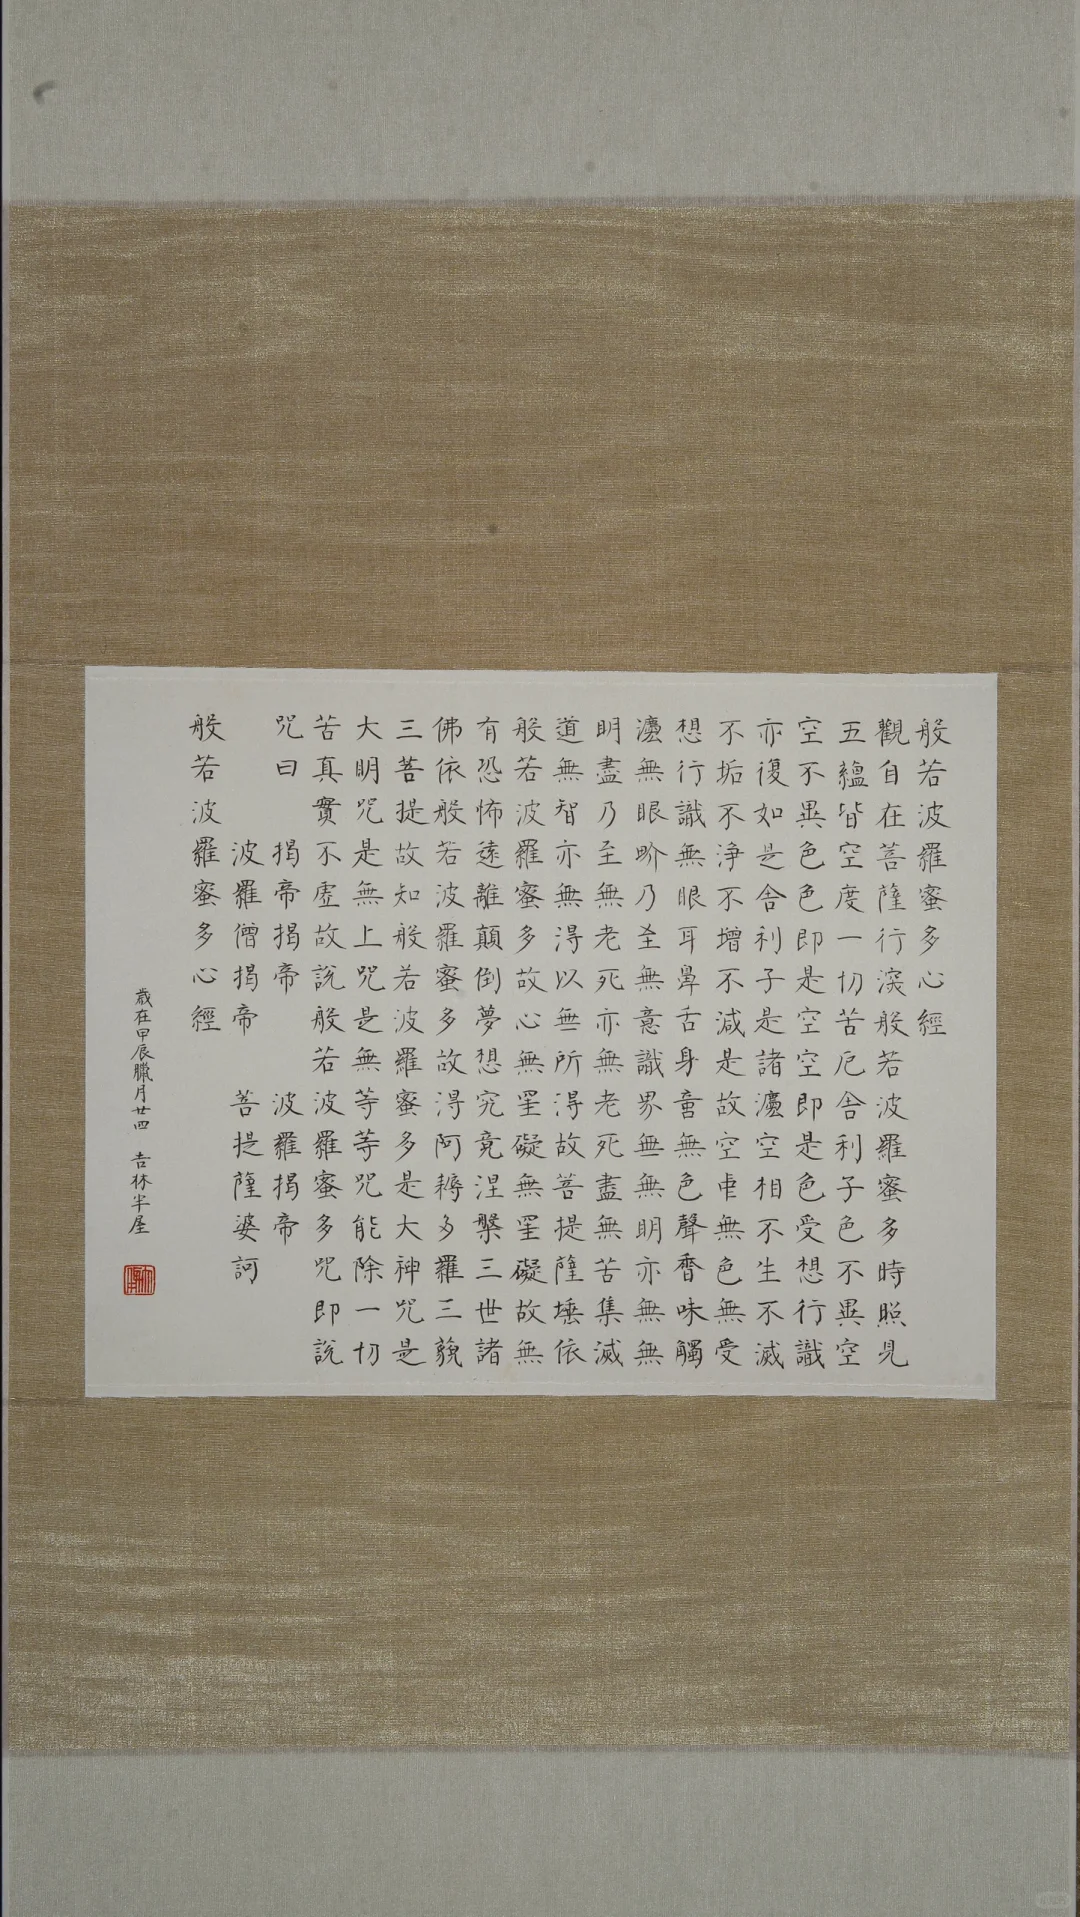 般若波羅蜜多心經
觀自在菩薩行深般若波羅蜜多時照見
五蘊皆空度一切苦厄舍利子色不異空
空不異色色即是空空即是色受想行識
亦復如是舍利子是諸灋空相不生不滅
不垢不淨不增不減是故空中無色無受
想行識無眼耳鼻舌身意無色聲香味觸
灋無眼界乃至無意識界無無明亦無無
明盡乃至無老死亦無老死盡無苦集滅
道無智亦無得以無所得故菩提薩埵依
般若波羅蜜多故心無罣礙無罣礙故無
有恐怖遠離顛倒夢想究竟涅槃三世諸
佛依般若波羅蜜多故得阿耨多羅三藐
三菩提故知般若波羅蜜多是大神咒是
大明咒是無上咒是無等等咒能除一切
苦真實不虛故說般若波羅蜜多咒即說
咒曰 揭帝揭帝 波羅揭帝
波羅僧揭帝 菩提薩婆訶
般若波羅蜜多心經
歲在甲辰臘月廿四 吉林半屋